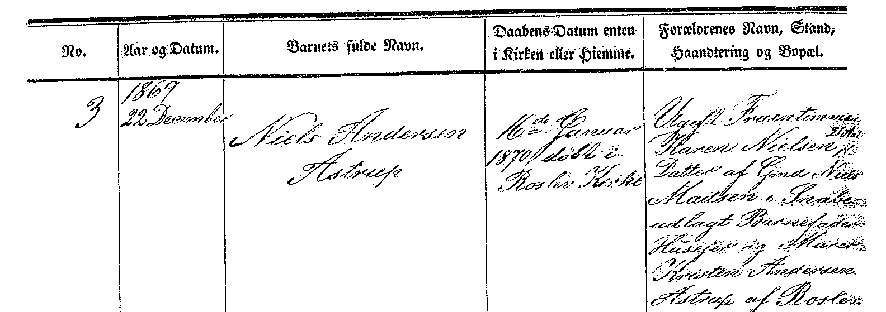 No.
Aar og Datum.
Barnets fulde Navn.
Daabens-Datum enten
i Kirken eller Hjemme.
Forældrenes Navn, Stand,
Haandtering og Bopæl.
3
1869
22 December
Niels Andersen
Astrup
16de Januar
1870, døbt i
Roslev Kirke
Ugift Fruentimmer
Karen Nielsen
Datter af Gmd Niels
Madsen i
udlagt Barnefader
Husejer og
Kristen Andersen
Astrup af Roslev